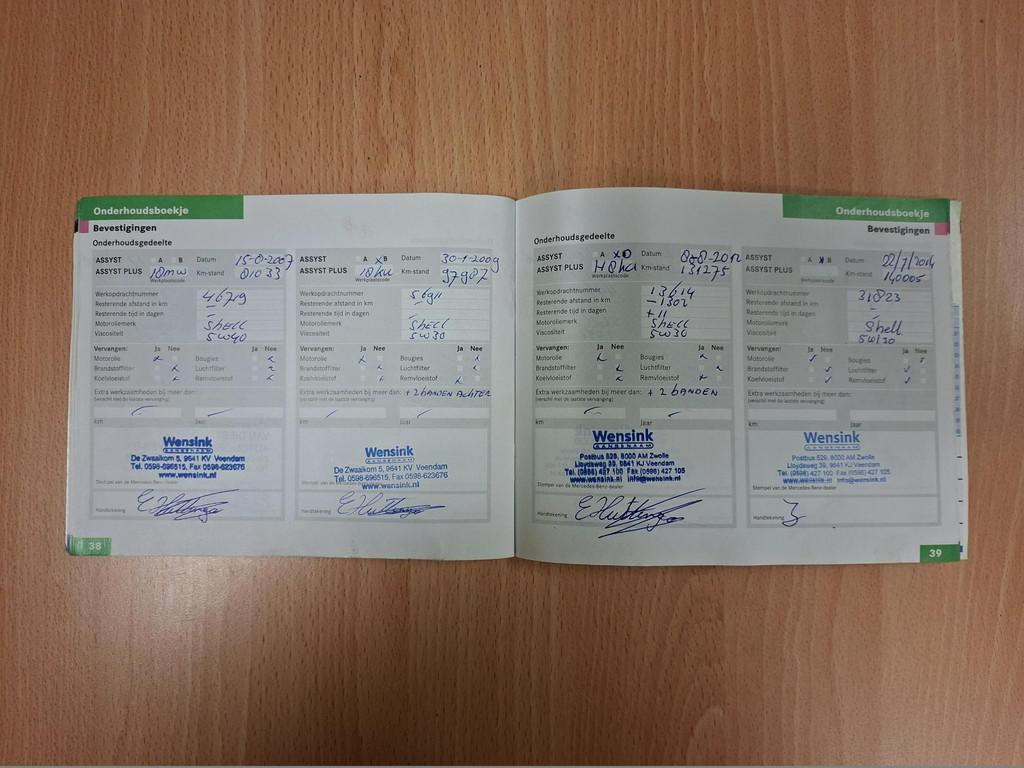 Onderhoudsboekje
Bevestigingen
Onderhoudsgedeelte
ASSYST A X B Datum 15-8-2007
ASSYST PLUS 18mw Km-stand 81033
Werkplaatscode
Werkopdrachtnummer 46719
Resterende afstand in km -
Resterende tijd in dagen -
Motoroliemerk Shell
Viscositeit 5W40
Vervangen: Ja Nee Ja Nee
Motorolie Bougies
Brandstoffilter Luchtfilter
Koelvloeistof Remvloeistof
Extra werkzaamheden bij meer dan:
(verschil met de laatste vervanging)
km Jaar
Wensink
De Zwaaikom 5, 9641 KV Veendam
Tel. 0598-696515, Fax 0598-623676
www.wensink.nl
Stempel van de Mercedes-Benz-dealer
Handtekening
38
ASSYST A X B Datum 30-1-2009
ASSYST PLUS Km-stand 97987
Werkplaatscode
Werkopdrachtnummer 56911
Resterende afstand in km -
Resterende tijd in dagen -
Motoroliemerk Shell
Viscositeit 5W30
Vervangen: Ja Nee Ja Nee
Motorolie Bougies
Brandstoffilter Luchtfilter
Koelvloeistof Remvloeistof
Extra werkzaamheden bij meer dan: + 2 BANDEN ACHTER
(verschil met de laatste vervanging)
km Jaar
Wensink
De Zwaaikom 5, 9641 KV Veendam
Tel. 0598-696515, Fax 0598-623676
www.wensink.nl
Stempel van de Mercedes-Benz-dealer
Handtekening
Onderhoudsboekje
Bevestigingen
Onderhoudsgedeelte
ASSYST A Datum 8-8-2012
ASSYST PLUS Km-stand 131275
Werkplaatscode
Werkopdrachtnummer 13614
Resterende afstand in km -1302
Resterende tijd in dagen +11
Motoroliemerk Shell
Viscositeit 5W30
Vervangen: Ja Nee Ja Nee
Motorolie Bougies
Brandstoffilter Luchtfilter
Koelvloeistof Remvloeistof
Extra werkzaamheden bij meer dan: + 2 BANDEN
(verschil met de laatste vervanging)
km Jaar
Wensink
Postbus 529, 8000 AM Zwolle
Lloydsweg 39, 9641 KJ Veendam
Tel. (0598) 427 100 Fax (0598) 427 105
www.wensink.nl info@wensink.nl
Stempel van de Mercedes-Benz-dealer
Handtekening
ASSYST A X B Datum 22/7/2014
ASSYST PLUS Km-stand 140005
Werkplaatscode
Werkopdrachtnummer 31823
Resterende afstand in km -
Resterende tijd in dagen -
Motoroliemerk Shell
Viscositeit 5W/30
Vervangen: Ja Nee Ja Nee
Motorolie Bougies
Brandstoffilter Luchtfilter
Koelvloeistof Remvloeistof
Extra werkzaamheden bij meer dan:
(verschil met de laatste vervanging)
km Jaar
Wensink
Postbus 529, 8000 AM Zwolle
Lloydsweg 39, 9641 KJ Veendam
Tel. (0598) 427 100 Fax (0598) 427 105
www.wensink.nl info@wensink.nl
Stempel van de Mercedes-Benz-dealer
Handtekening
39